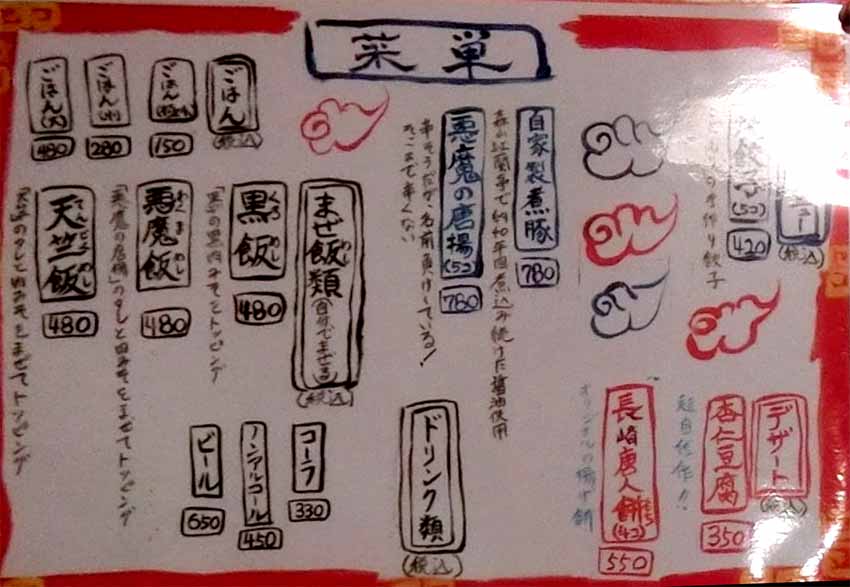 菜単
ュー
(税込)
餃子(5コ)
420
手作り餃子
自家製煮豚
780
森山紅蘭亭で約40年間煮込み続けた醤油使用
悪魔の唐揚(5コ)
780
辛そうだが、名前負けしている!
そこまで辛くない
まぜ飯類(自分でまぜる)
めし
(税込)
黒飯
くろめし
480
「黒」の黒肉みそをトッピング
悪魔飯
あくまめし
480
「悪魔の唐揚」のタレと肉みそをまぜてトッピング
天竺飯
てんじくめし
480
のタレと肉みそをまぜてトッピング
ごはん
(税込)
ごはん
150
ごはん(小)
280
ごはん(大)
480
デザート
(税込)
杏仁豆腐
350
超自信作!!
長崎唐人餅(4コ)
もち
550
オリジナルの揚げ餅
ドリンク類
(税込)
コーラ
330
ノンアルコール
450
ビール
650